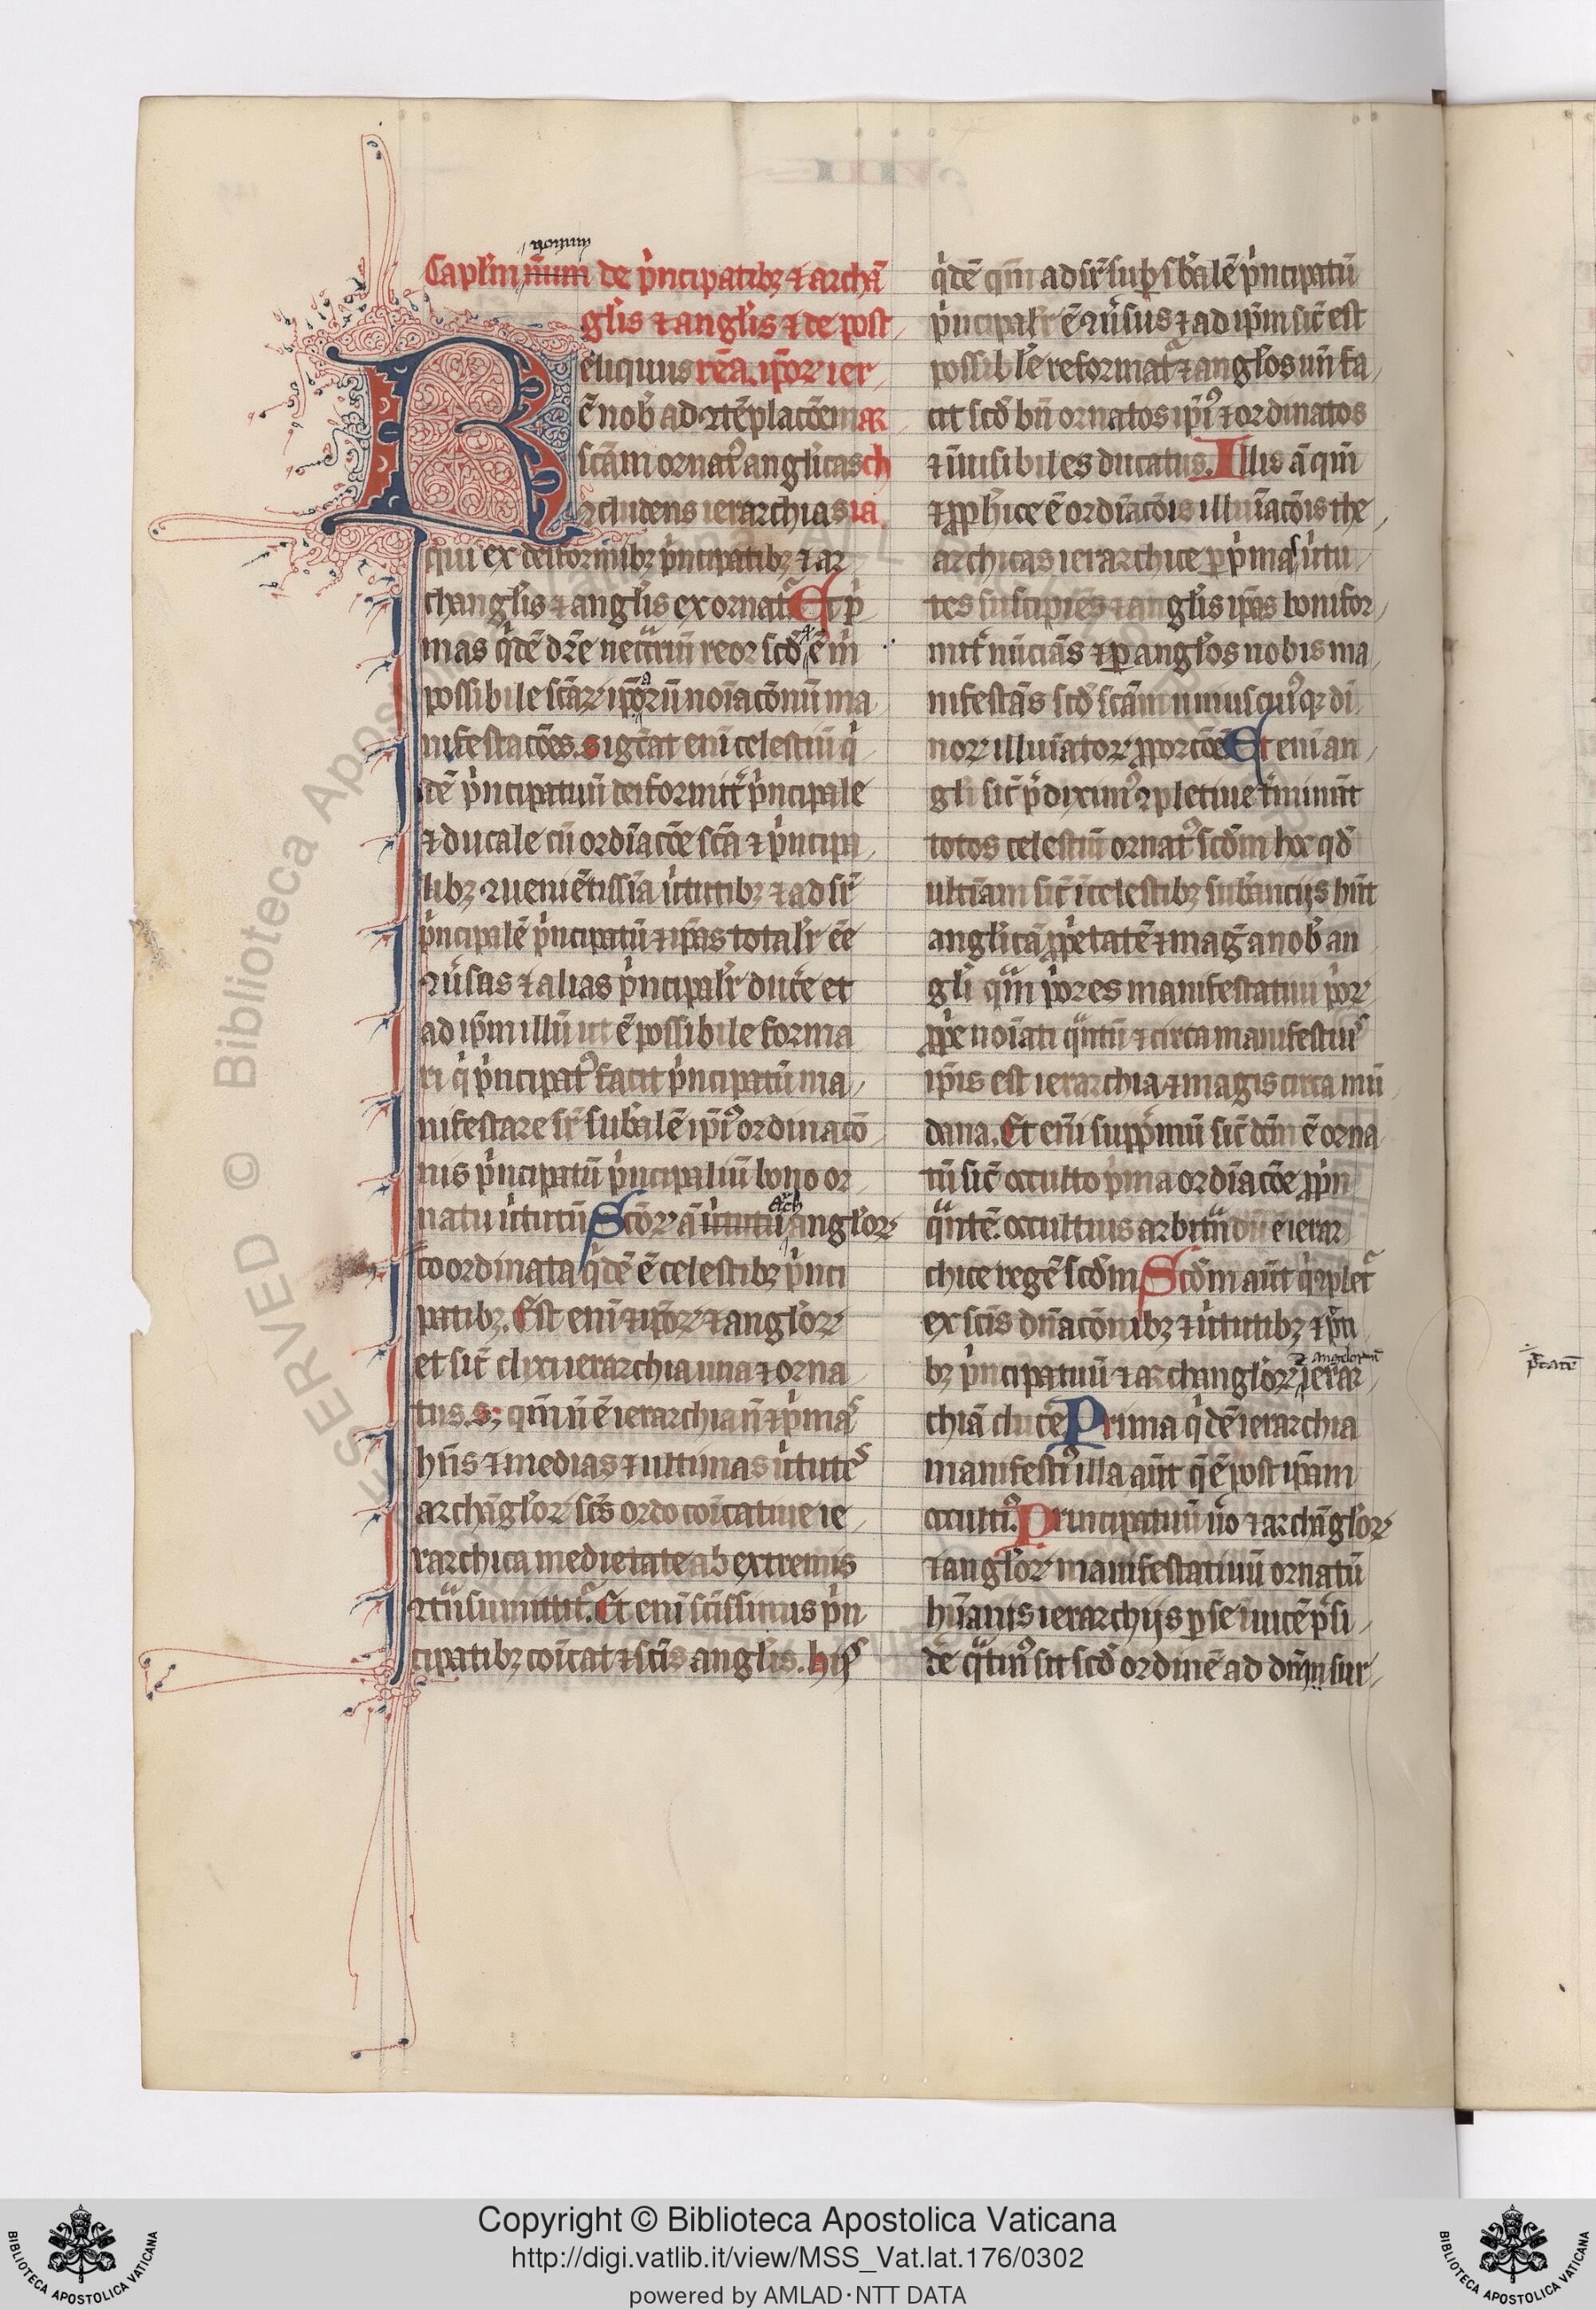 nonum
Capl'm nūum de p'ncipatibꝫ ⁊ archā
gl'is ⁊ angl'is ⁊ de post
eliquus rēa. ip̄oꝝ ier
ē nob' ad ꝯtēplacōem ar
scām ornat' anglicas ch
ꝯcludens ierarchias ia
qui ex deiformibꝫ p'ncipatibꝫ ⁊ ar
changl'is ⁊ angl'is exornat' Et p'
mas q'dē
possibile scāꝝ ip̄oꝝ noīacōnū ma
nifestacōes. Siḡcat enī celestiū q'
dē p'ncipatuū deiformit' p'ncipale
⁊ ducale cū ordīacōe sc̄a ⁊ p'ncipa
libꝫ ꝯueniētissīa u'tutibꝫ ⁊ ad sr̄
p'ncipalē p'ncipatū ⁊ ip̄as total'r ēe
ꝯu'sas ⁊ alias p'ncipal'r duc'e et
ad ip̄m illū ut ē possibile forma
ri q' p'ncipat' facit p'ncipatū ma
nifestare sr̄ sub'alē ip̄i' ordinacō
nis p'ncipatū p'ncipaliū bono or
natu u'tutū Sc̄oꝝ ā u'tutū arch angl'oꝝ
coordinata q'dē ē celestibꝫ p'nci
patibꝫ. Est enī ⁊ ip̄oꝝ ⁊ angl'oꝝ
et sic̄ dixi ierarchia una ⁊ orna
tus. Sꝫ qm̄ n̄ ē ierarchia n̄ ⁊ p'mas
hn̄s ⁊ medias ⁊ ultimas u'tutes
archāgl'oꝝ sc̄s ordo cōīcatiue ie
rarchica medietate ab extremis
Et enī sc̄issimus p'n
cipatibꝫ cōīcat ⁊ sc̄is angl'is. his
q'dē qm̄ ad sr̄ sup̄ sb'alē p'ncipatū
p'ncipal'r ē ꝯu'sus ⁊ ad ip̄m sic̄ est
possibl'e reformat' ⁊ angl'os un̄ fa
cit scd' bn̄ ornatos ip̄i' ⁊ ordinatos
⁊ īuisibiles ducatus. Illis ā qm̄
⁊ ꝓph'ice ē ordīacōis illuīacōis the
archicas ierarchice ꝑ p'mas u'tu
tes suscipiēs ⁊ angl'is ip̄as bonifor
mit' nūciās ⁊ ꝑ angl'os nobis ma
nifestās scd' scām uniuscui'qꝫ di
noꝝ illuīatoꝝ ꝓporcōē Et enī an
gl'i sic̄ p'dixim' ꝯpletiue t'minūt
totos celestiū ornat' scd'm hoc qd'
ultīam sic̄ ī celestibꝫ sub'ancijs hn̄t
anglicā ꝓp'etatē ⁊ mag' a nob' an
gl'i qm̄ p'ores manifestatiui p'oꝝ
ꝓp'e noīati q'ntū ⁊ circa manifestius
ip̄is est ierarchia ⁊ magis circa mū
dana. Et enī supp'mū sic̄ dc̄m ē orna
tū sic̄ occulto p'ma ordīacōe ꝓp'n
q'ntē. occultius arbitu'dū ē ierar
chice regē scd'm Scd'm aūt q' ꝯplet'
ex sc̄is dn̄acōnibꝫ ⁊ u'tutibꝫ ⁊
bꝫ p'ncipatuū ⁊ archangl'oꝝ ⁊ angeloruꝫ ierar
chiā duc'e Prima q'dē ierarchia
manifesti' illa aūt q̄ ē post ip̄am
occulti' Principatuū u'o ⁊ archāgl'oꝝ
⁊ angl'oꝝ manifestatiuū ornatū
hūanis ierarchijs ꝑ se īuicē p'si
de' q'tin' sit scd' ordinē ad dn̄m sur
p̄tatē
Copyright © Biblioteca Apostolica Vaticana
http://digi.vatlib.it/view/MSS_Vat.lat.176/0302
powered by AMLAD·NTT DATA
BIBLIOTECA APOSTOLICA VATICANA
BIBLIOTECA APOSTOLICA VATICANA